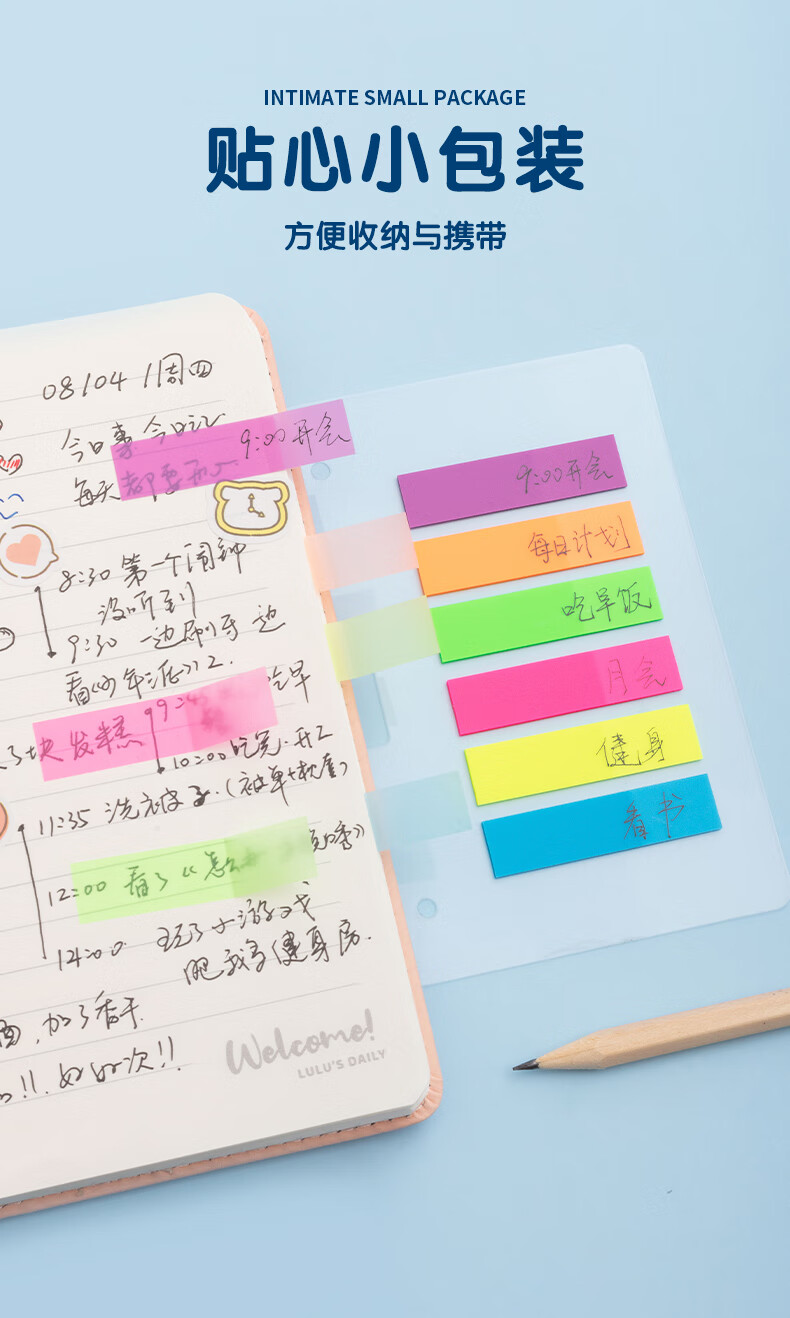 INTIMATE SMALL PACKAGE
贴心小包装
方便收纳与携带
08/04 /周四
今日事 今日记
每天都要开心
9:00 开会
8:30 第一个闹钟
没听到
9:30 一边刷牙 边
看《少年派》2.
吃早
块 发糕
10:00 吃完.开工
11:35 洗被子.(被单+枕套)
12:00 看了《怎么
14:00 玩了小游戏
肥我多健身房.
加了香干.
好好次!!
Welcome!
LULU'S DAILY
9:00 开会
每日计划
吃早饭
月会
健身
看书